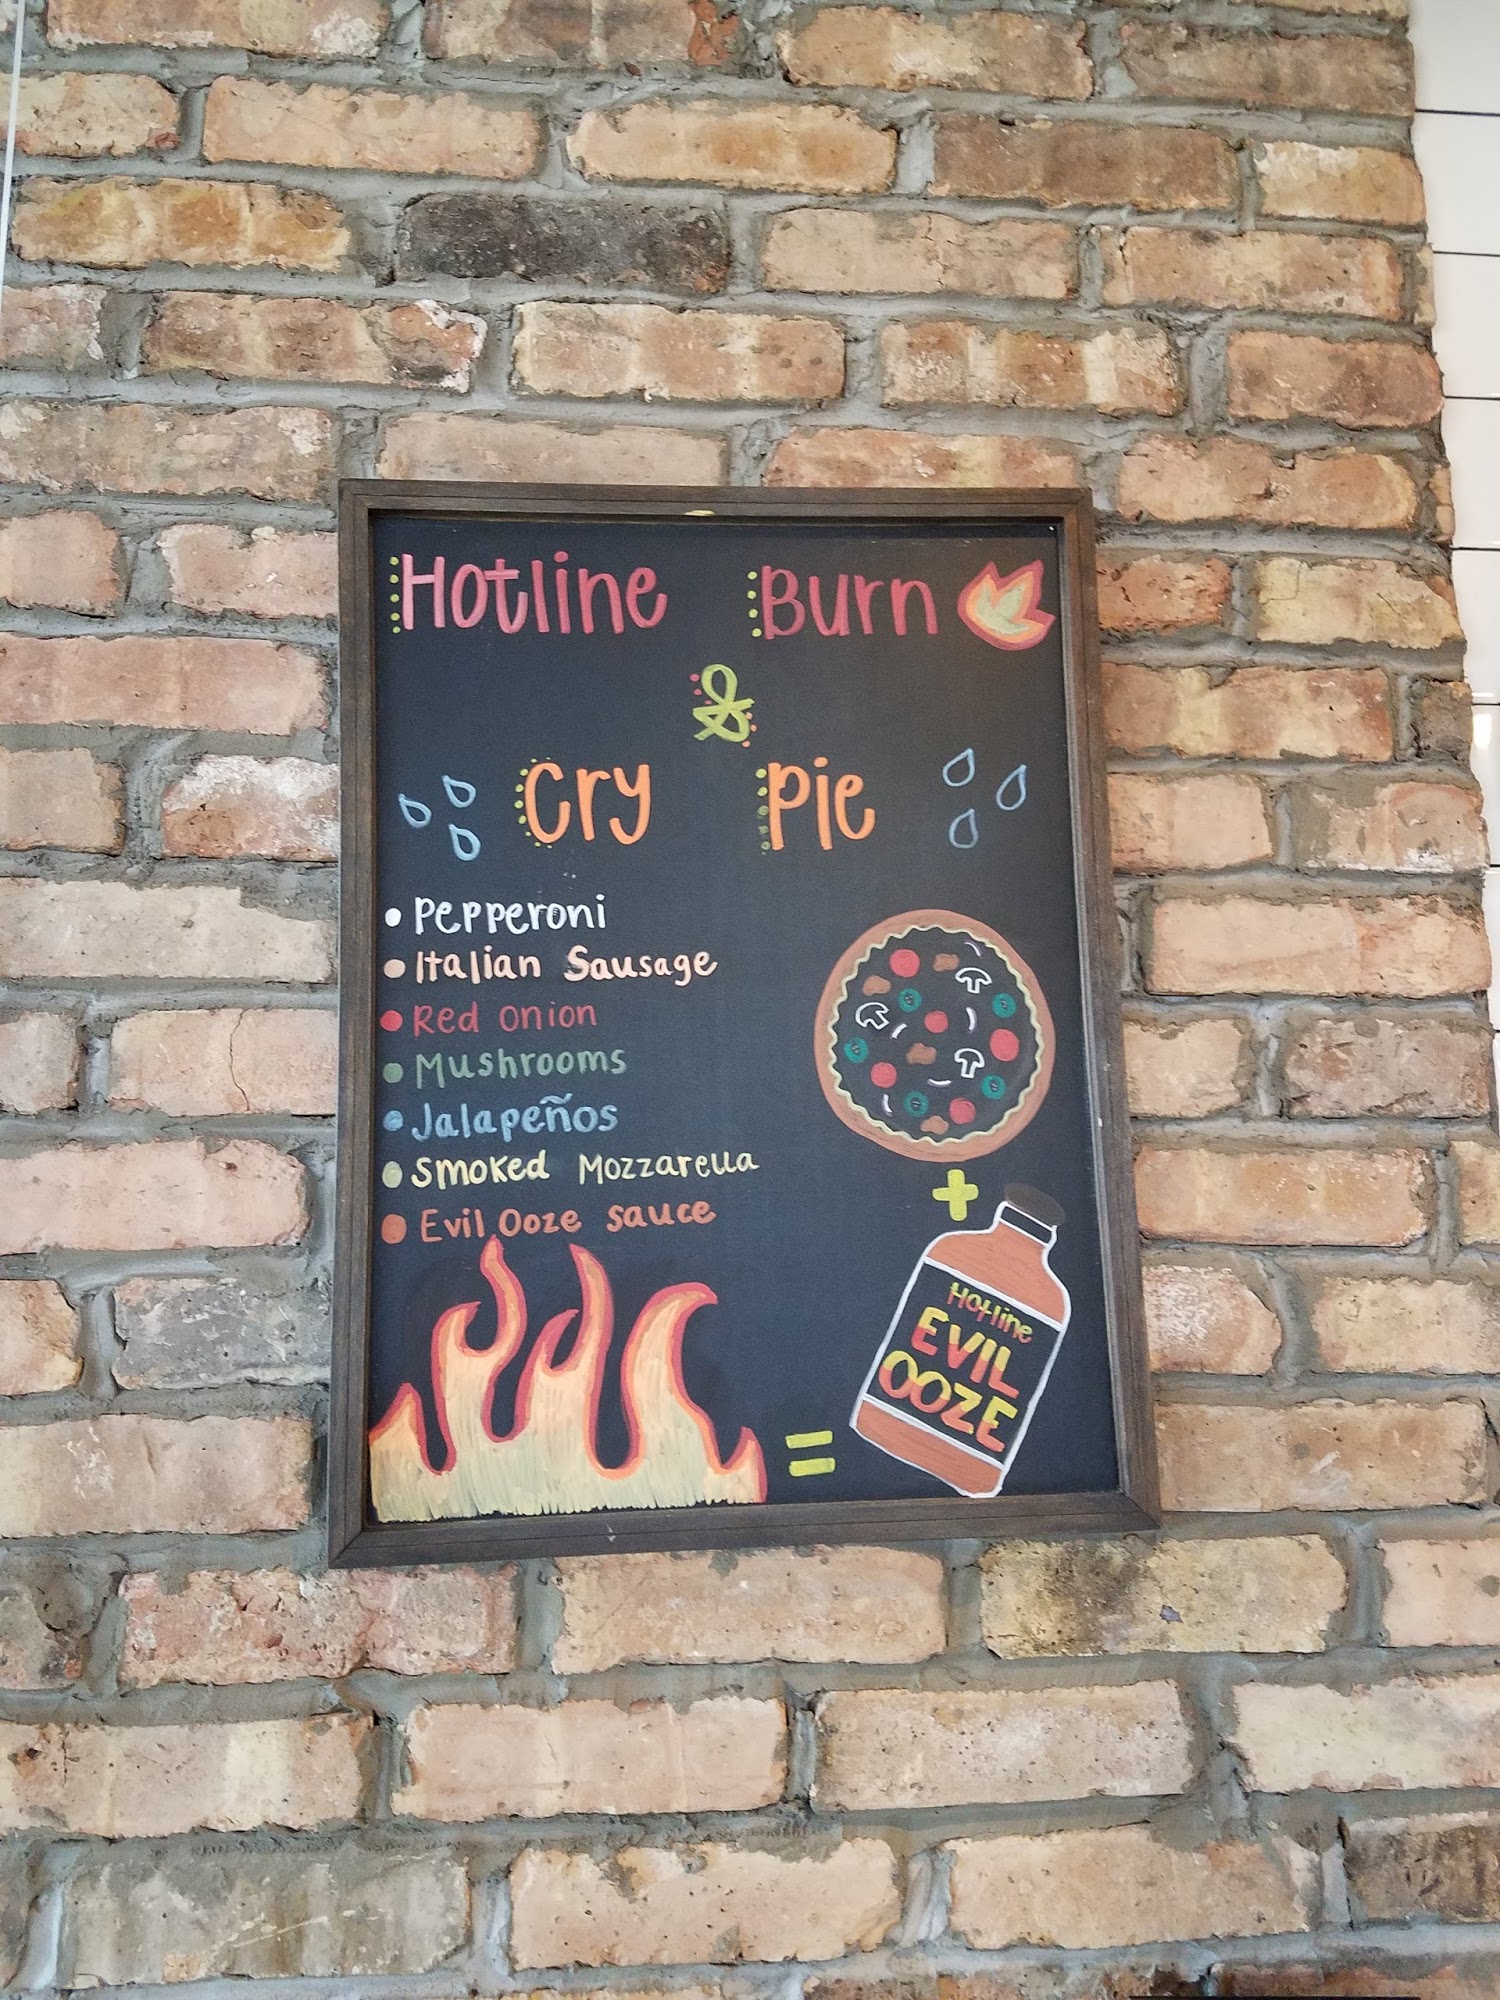 Hotline Burn
&
Cry Pie
• Pepperoni
• Italian Sausage
• Red onion
• Mushrooms
• Jalapeños
• Smoked Mozzarella
• Evil Ooze sauce
+
Hotline
EVIL
OOZE
=